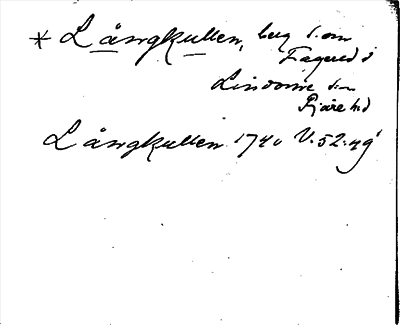 * Långkullen, berg S. om
Fagered i
Lindome sn
Fjäre hd
Långkullen 1740 V. 52. 49